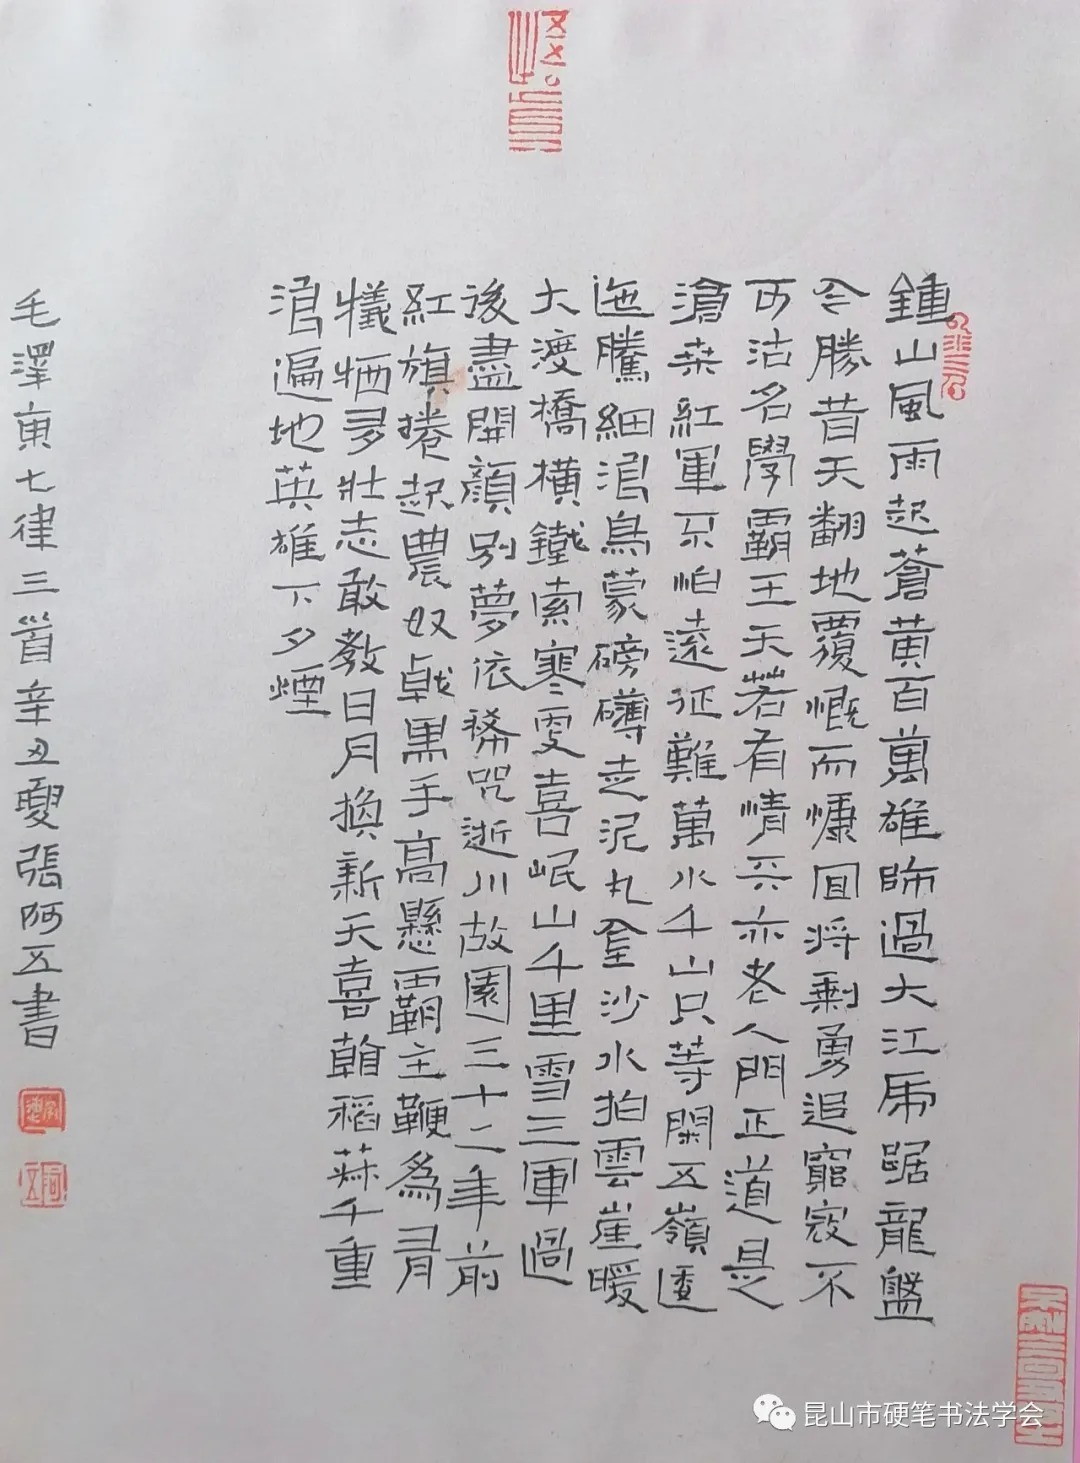 鍾山風雨起蒼黃百萬雄師過大江虎踞龍盤
今勝昔天翻地覆慨而慷宜將剩勇追窮寇不
可沽名學霸王天若有情天亦老人間正道是
滄桑紅軍不怕遠征難萬水千山只等閑五嶺逶
迤騰細浪烏蒙磅礴走泥丸金沙水拍雲崖暖
大渡橋橫鐵索寒更喜岷山千里雪三軍過
後盡開顏別夢依稀咒逝川故園三十二年前
紅旗捲起農奴戟黑手高懸霸主鞭為有
犧牲多壯志敢教日月換新天喜看稻菽千重
浪遍地英雄下夕煙
毛澤東七律三首辛丑夏張阿五書
昆山市硬笔书法学会